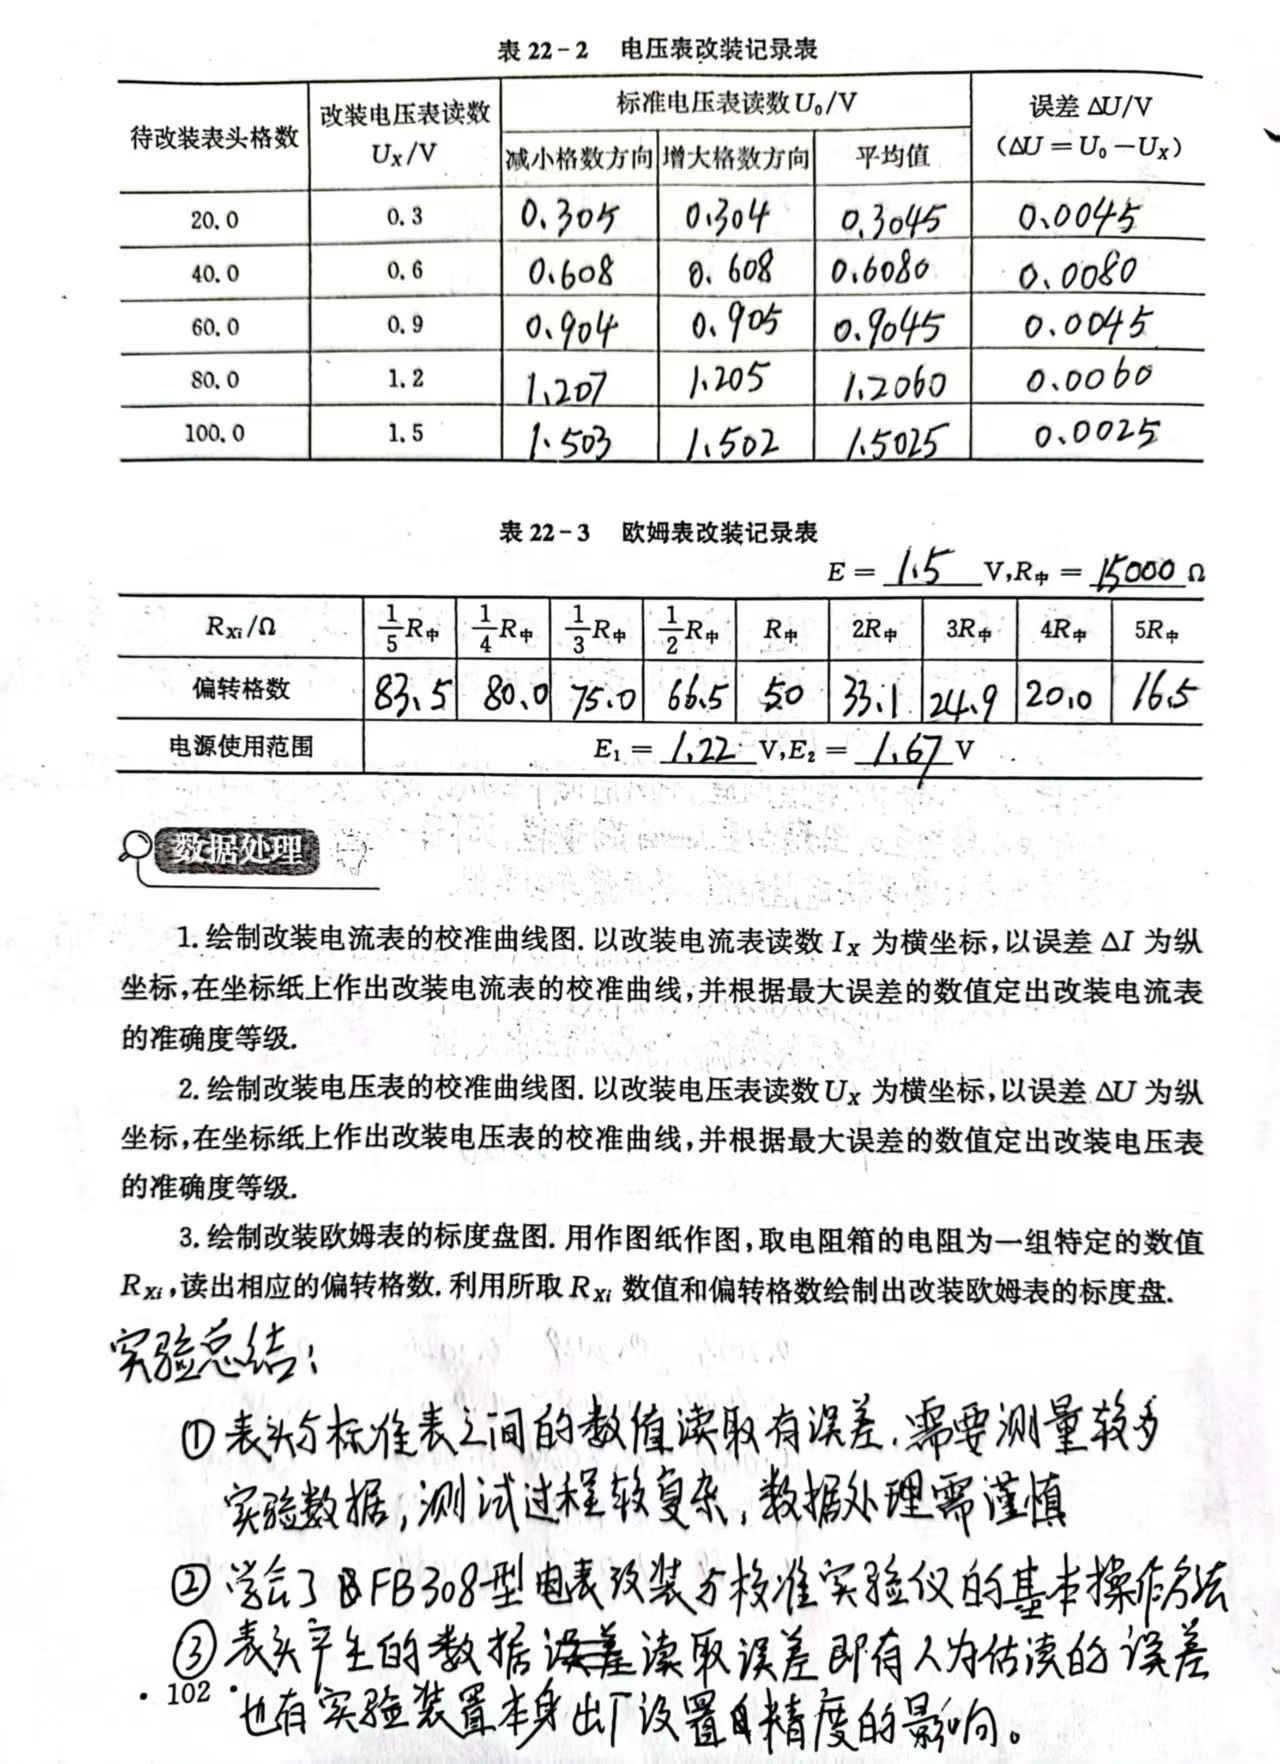 表 22-2 电压表改装记录表
待改装表头格数 改装电压表读数 U_X/V 标准电压表读数 U₀/V 误差 ΔU/V (ΔU = U₀ - U_X)
减小格数方向 增大格数方向 平均值
20.0 0.3 0.305 0.304 0.3045 0.0045
40.0 0.6 0.608 0.608 0.6080 0.0080
60.0 0.9 0.904 0.905 0.9045 0.0045
80.0 1.2 1.207 1.205 1.2060 0.0060
100.0 1.5 1.503 1.502 1.5025 0.0025
表 22-3 欧姆表改装记录表
E = 1.5 V,R中 = 15000 Ω
R_Xi/Ω 1/5R中 1/4R中 1/3R中 1/2R中 R中 2R中 3R中 4R中 5R中
偏转格数 83.5 80.0 75.0 66.5 50 33.1 24.9 20.0 16.5
电源使用范围 E₁ = 1.22 V,E₂ = 1.67 V
数据处理
1. 绘制改装电流表的校准曲线图. 以改装电流表读数 I_X 为横坐标,以误差 ΔI 为纵
坐标,在坐标纸上作出改装电流表的校准曲线,并根据最大误差的数值定出改装电流表
的准确度等级.
2. 绘制改装电压表的校准曲线图. 以改装电压表读数 U_X 为横坐标,以误差 ΔU 为纵
坐标,在坐标纸上作出改装电压表的校准曲线,并根据最大误差的数值定出改装电压表
的准确度等级.
3. 绘制改装欧姆表的标度盘图. 用作图纸作图,取电阻箱的电阻为一组特定的数值
R_Xi,读出相应的偏转格数. 利用所取 R_Xi 数值和偏转格数绘制出改装欧姆表的标度盘.
实验总结:
①表头与标准表之间的数值读取有误差,需要测量较多
实验数据,测试过程较复杂,数据处理需谨慎
②学会了FB308型电表改装与校准实验仪的基本操作方法
③表头产生的数据读取误差即有人为估读的误差
· 102 ·
也有实验装置本身出厂设置精度的影响。